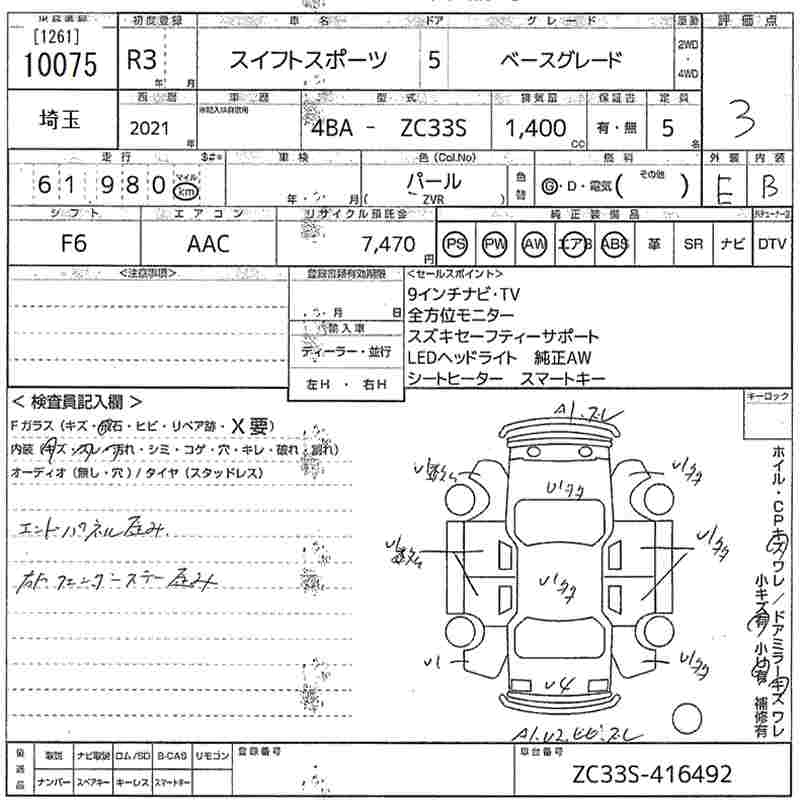 [1261]
10075
初度登録 車名 ドア グレード 駆動 評価点
R3 年 月 スイフトスポーツ 5 ベースグレード 2WD ・ 4WD
3
埼玉
西暦 車歴 型式 排気量 保証書 定員
2021 年 4BA - ZC33S 1,400 CC 有・無 5 名
走行 車検 色(Col.No) 燃料 外装 内装
61980 マイル km 年 月 パール ( ZVR ) 色替 G・D・電気( その他 ) E B
シフト エアコン リサイクル預託金 純正装備品
F6 AAC 7,470 円 PS PW AW エアB ABS 革 SR ナビ DTV
<注意事項> 登録書類有効期限 <セールスポイント>
月 日
輸入車
ディーラー・並行
左H ・ 右H
9インチナビ・TV
全方位モニター
スズキセーフティーサポート
LEDヘッドライト 純正AW
シートヒーター スマートキー
キーロック
< 検査員記入欄 >
Fガラス (キズ・飛石・ヒビ・リペア跡・X要)
内装 (キズ・スレ・汚れ・シミ・コゲ・穴・キレ・破れ・割れ)
オーディオ (無し・穴) / タイヤ (スタッドレス)
エンドパネル歪み
右ドフェンダーステー歪み
A1.スレ
U1タタ
U1タタ
U1
U1タタ
U1タタ
U1
U1タタ
U4
A1.U2.ヒビ.スレ
ホイル・CPキズワレ/ドアミラーキズワレ
小キズ有 小凹有 補修有
後送品 取説 ナビ取説 ロム/SD B-CAS リモコン 登録番号 車台番号
ナンバー スペアキー キーレス スマートキー
ZC33S-416492